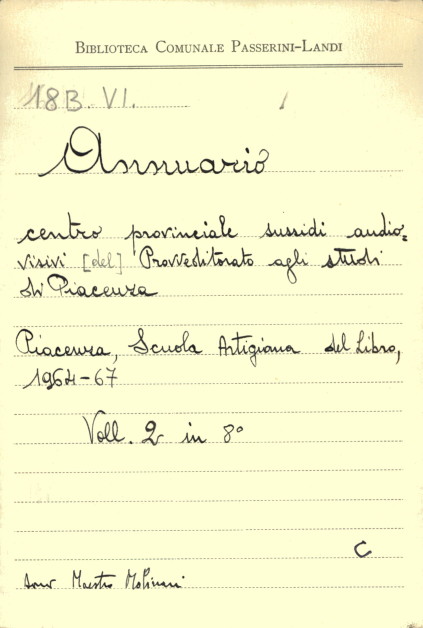 BIBLIOTECA COMUNALE PASSERINI-LANDI
18B. VI.
Annuario
centro provinciale sussidi audio=
visivi [del] Provveditorato agli studi
di Piacenza
Piacenza, Scuola Artigiana del Libro,
1964-67
Voll. 2 in 8°
C
Maestro Molinari